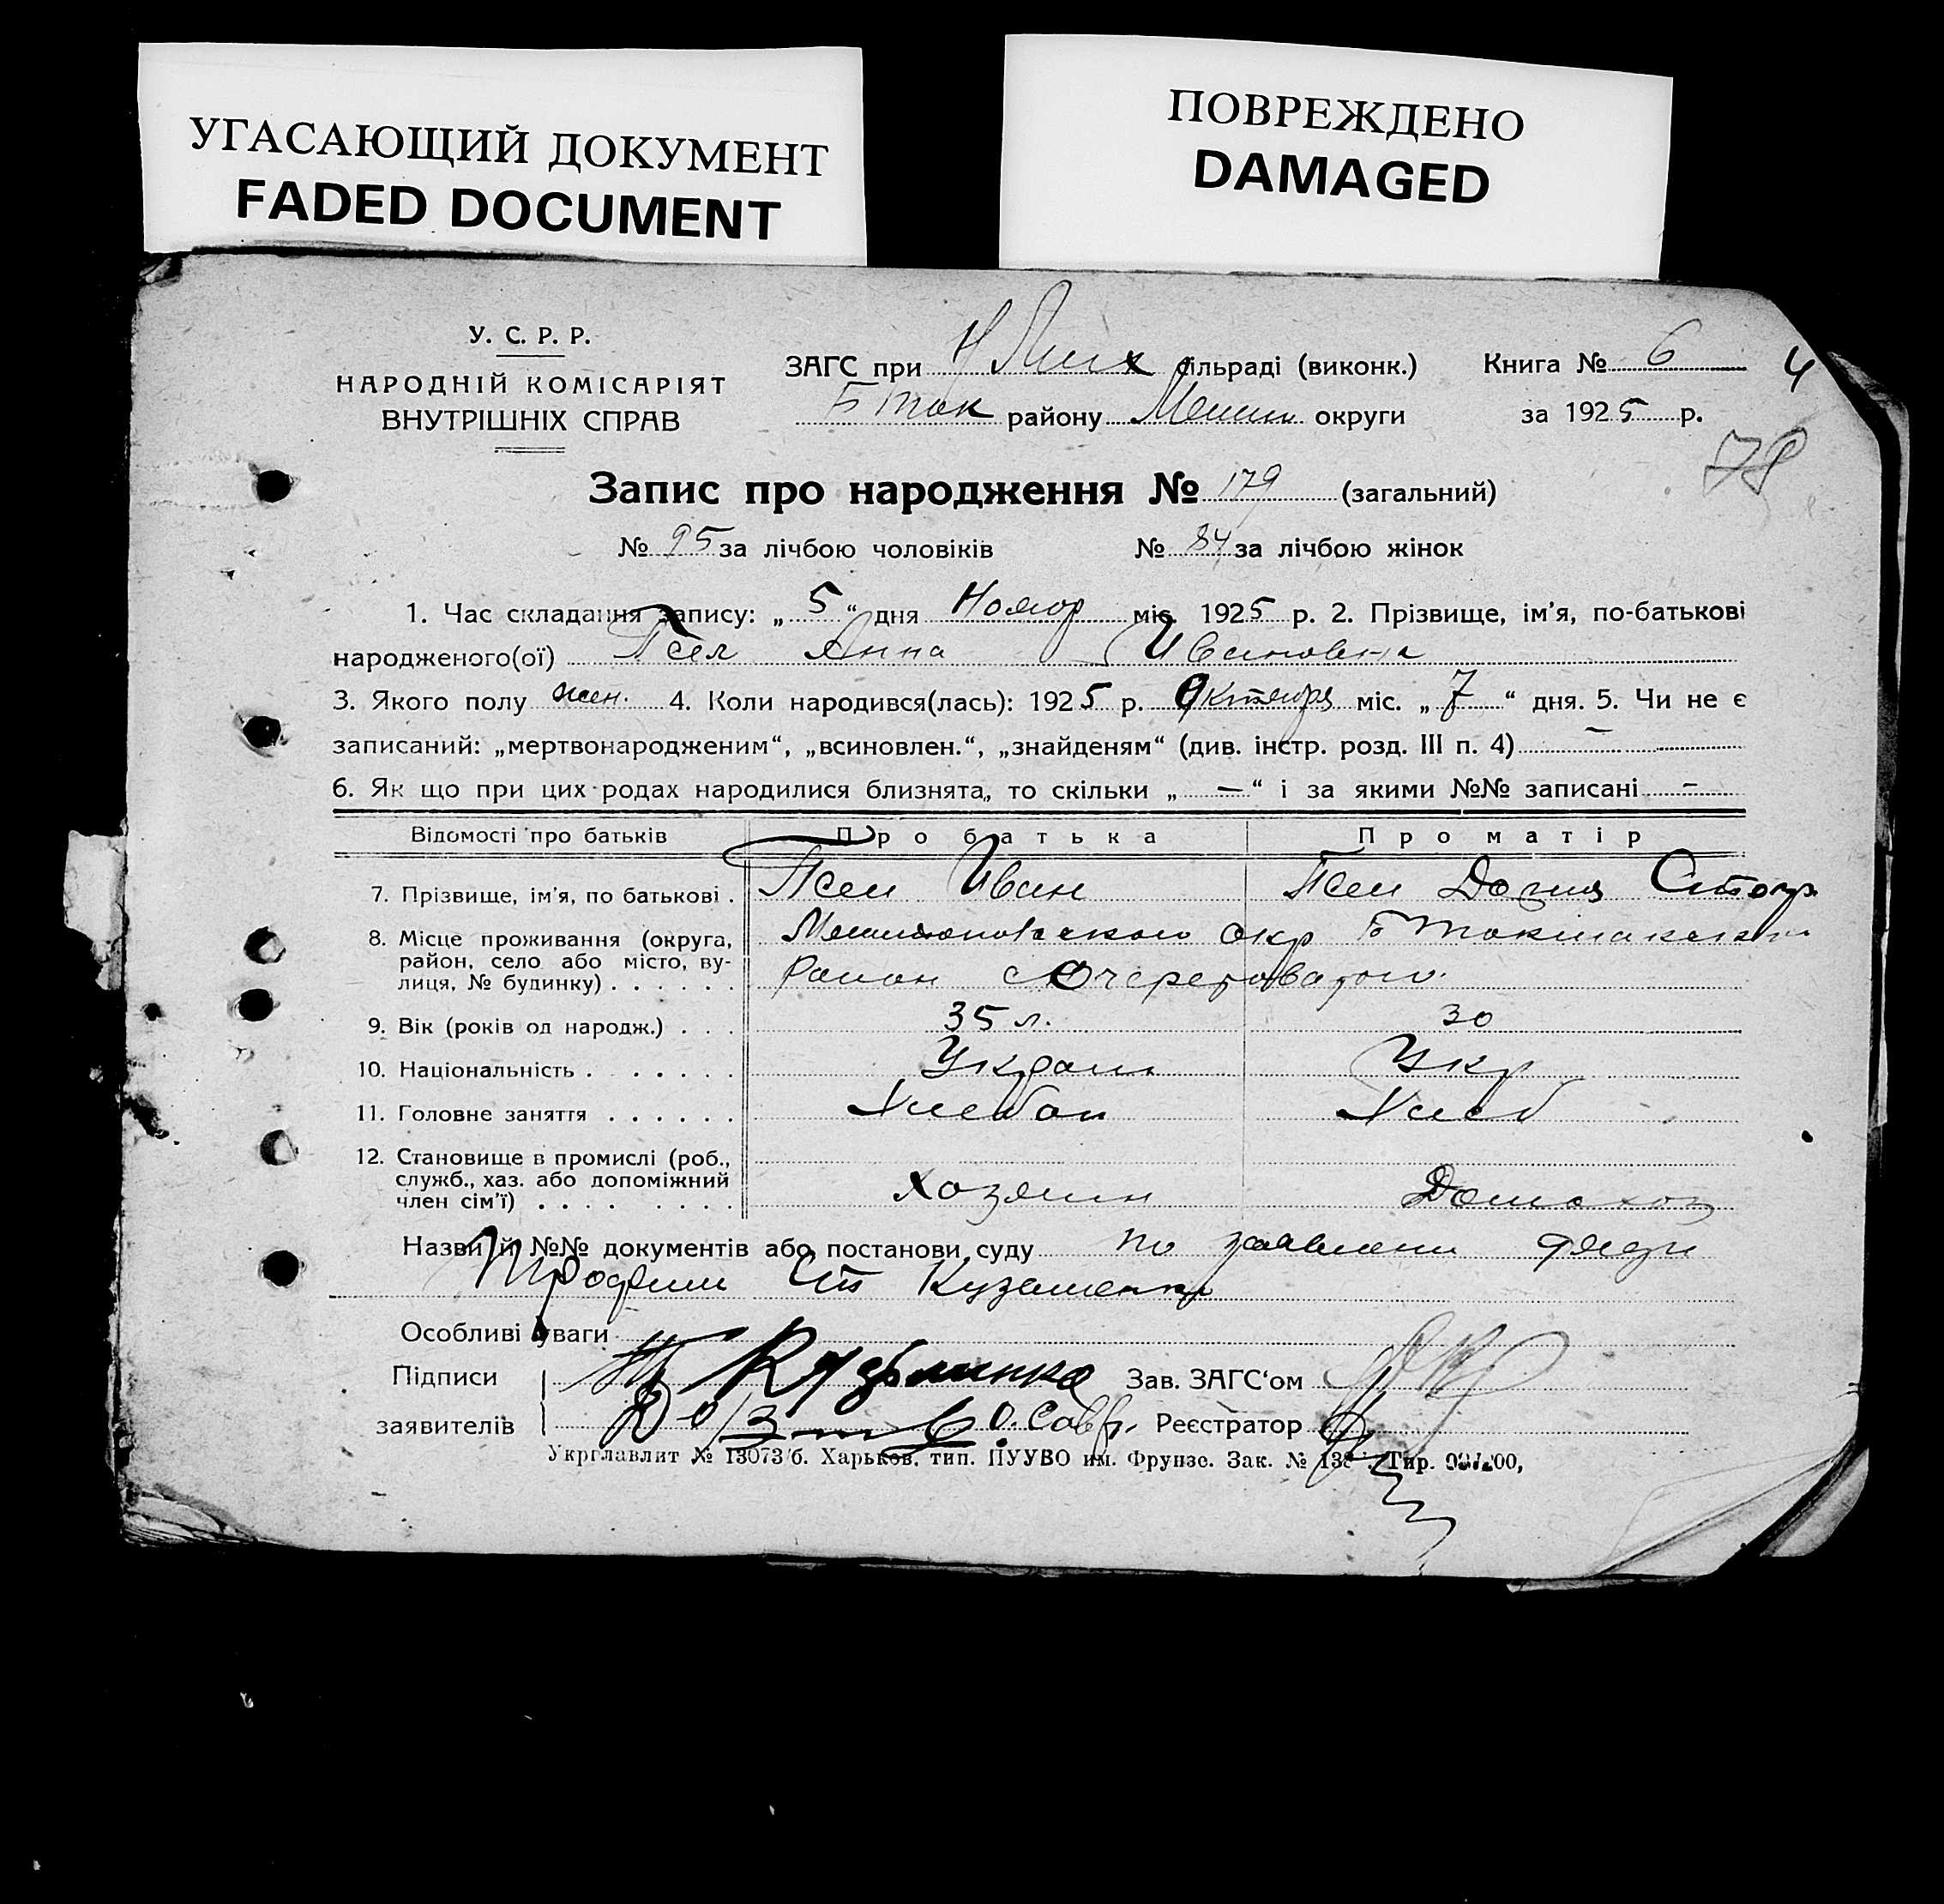 УГАСАЮЩИЙ ДОКУМЕНТ
FADED DOCUMENT
ПОВРЕЖДЕНО
DAMAGED
У. С. Р. Р.
НАРОДНІЙ КОМІСАРІЯТ
ВНУТРІШНІХ СПРАВ
ЗАГС при Н Мих сільраді (виконк.) Книга № 6 4
Б Ток району Мелит округи за 1925 р.
78
Запис про народження № 179 (загальний)
№ 95 за лічбою чоловіків № 84 за лічбою жінок
1. Час складання запису: „ 5 “ дня Ноябр міс. 1925 р. 2. Прізвище, ім’я, по-батькові
народженого(ої) Псел Анна Ивановна
3. Якого полу жен. 4. Коли народився(лась): 1925 р. Октября міс. „ 7 “ дня. 5. Чи не є
записаний: „мертвонародженим“, „всиновлен.“, „знайденям“ (див. інстр. розд. III п. 4) —
6. Як що при цих родах народилися близнята, то скільки „ — “ і за якими №№ записані -
Відомості про батьків Про батька Про матір
7. Прізвище, ім’я, по батькові . Псел Иван Псел Дария
8. Місце проживання (округа, Мелитопольского Окр Б Токмакского
район, село або місто, ву- район с Очеретоватого
лиця, № будинку) . . . . . .
9. Вік (років од народж.) . . . 35 л. 30
10. Національність . . . . . . Украин Укр
11. Головне заняття . . . . . . Хлебоп Хлеб
12. Становище в промислі (роб.,
служб., хаз. або допоміжний Хозяин Домохоз
член сім’ї) . . . . . . . .
Назви й №№ документів або постанови суду по заявлени дяди
Трофим Ст Кузьменко
Особливі уваги
Підписи Кузьминко Зав. ЗАГС‘ом
заявителів Реєстратор
Укрглавлит № 13073/б. Харьков. тип. ПУУВО им. Фрунзе. Зак. № Тир.